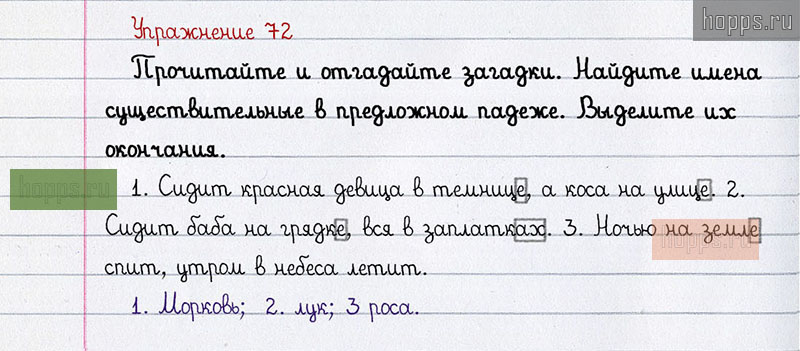 hopps.ru
Упражнение 72
Прочитайте и отгадайте загадки. Найдите имена
существительные в предложном падеже. Выделите их
окончания.
hopps.ru
1. Сидит красная девица в темнице, а коса на улице. 2.
Сидит баба на грядке, вся в заплатках. 3. Ночью на земле
hopps.ru
спит, утром в небеса летит.
1. Морковь; 2. лук; 3 роса.